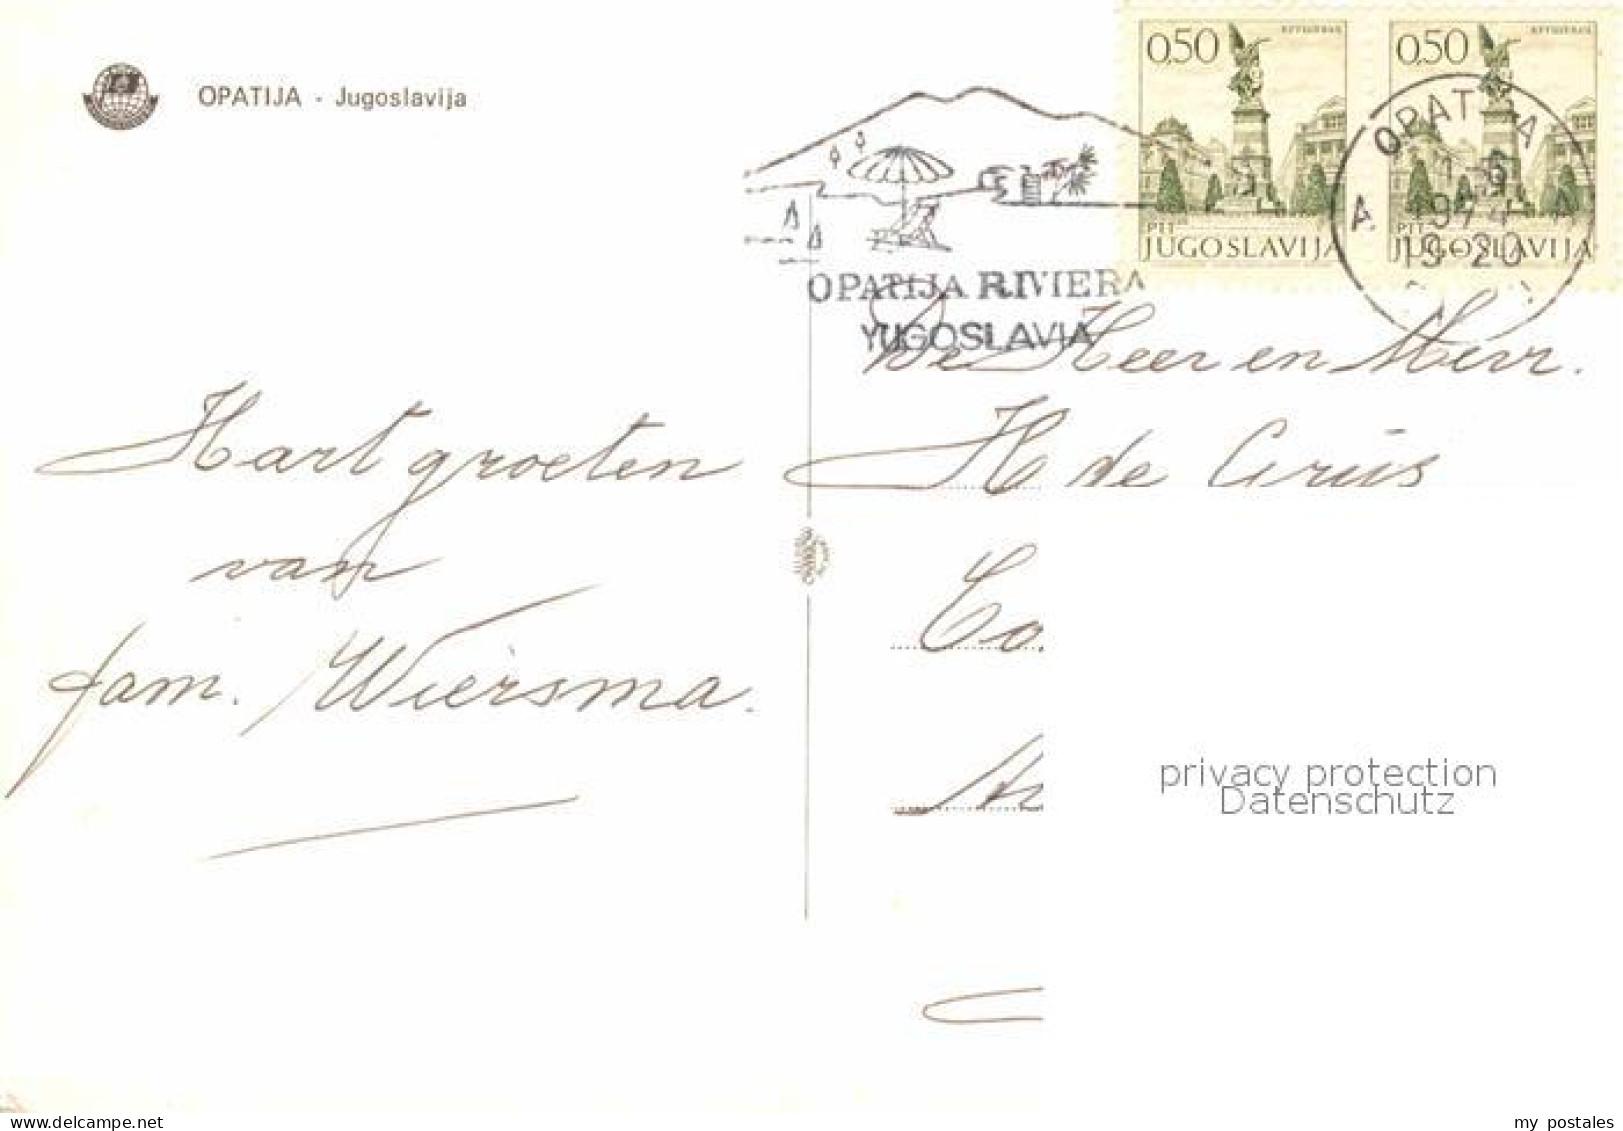 OPATIJA - Jugoslavija
0,50
КРУШЕВАЦ
PTT
JUGOSLAVIJA
0,50
КРУШЕВАЦ
PTT
JUGOSLAVIJA
OPATIJA
1974
19-20
OPATIJA RIVIERA
YUGOSLAVIA
Hart groeten
van
fam. Wiersma.
De Heer en Mevr.
H de
Co.
privacy protection
Datenschutz
my postales